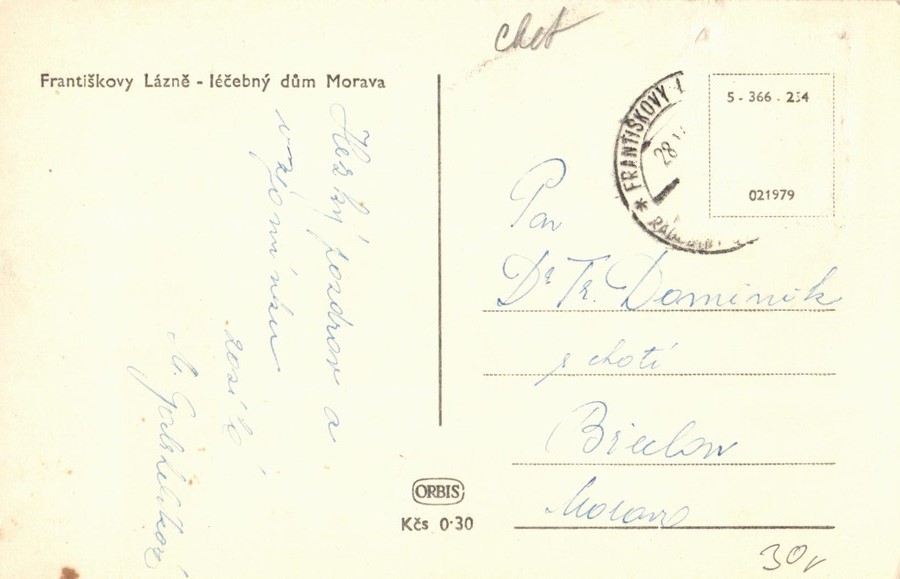 chet
Františkovy Lázně - léčebný dům Morava
Hezký pozdrav a
vzpomínku
posílá
5 - 366 - 234
021979
* FRANTIŠKOVY L
28
Pan
Dr Fr. Dominik
s chotí
Břeclav
Morava
ORBIS
Kčs 0·30
30,